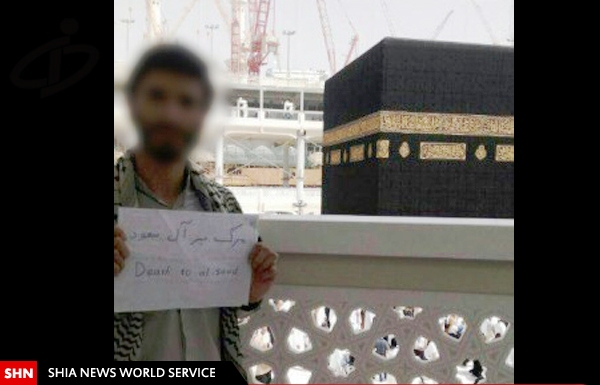 مرگ بر آل سعود
Death to al-saud
SHN SHIA NEWS WORLD SERVICE